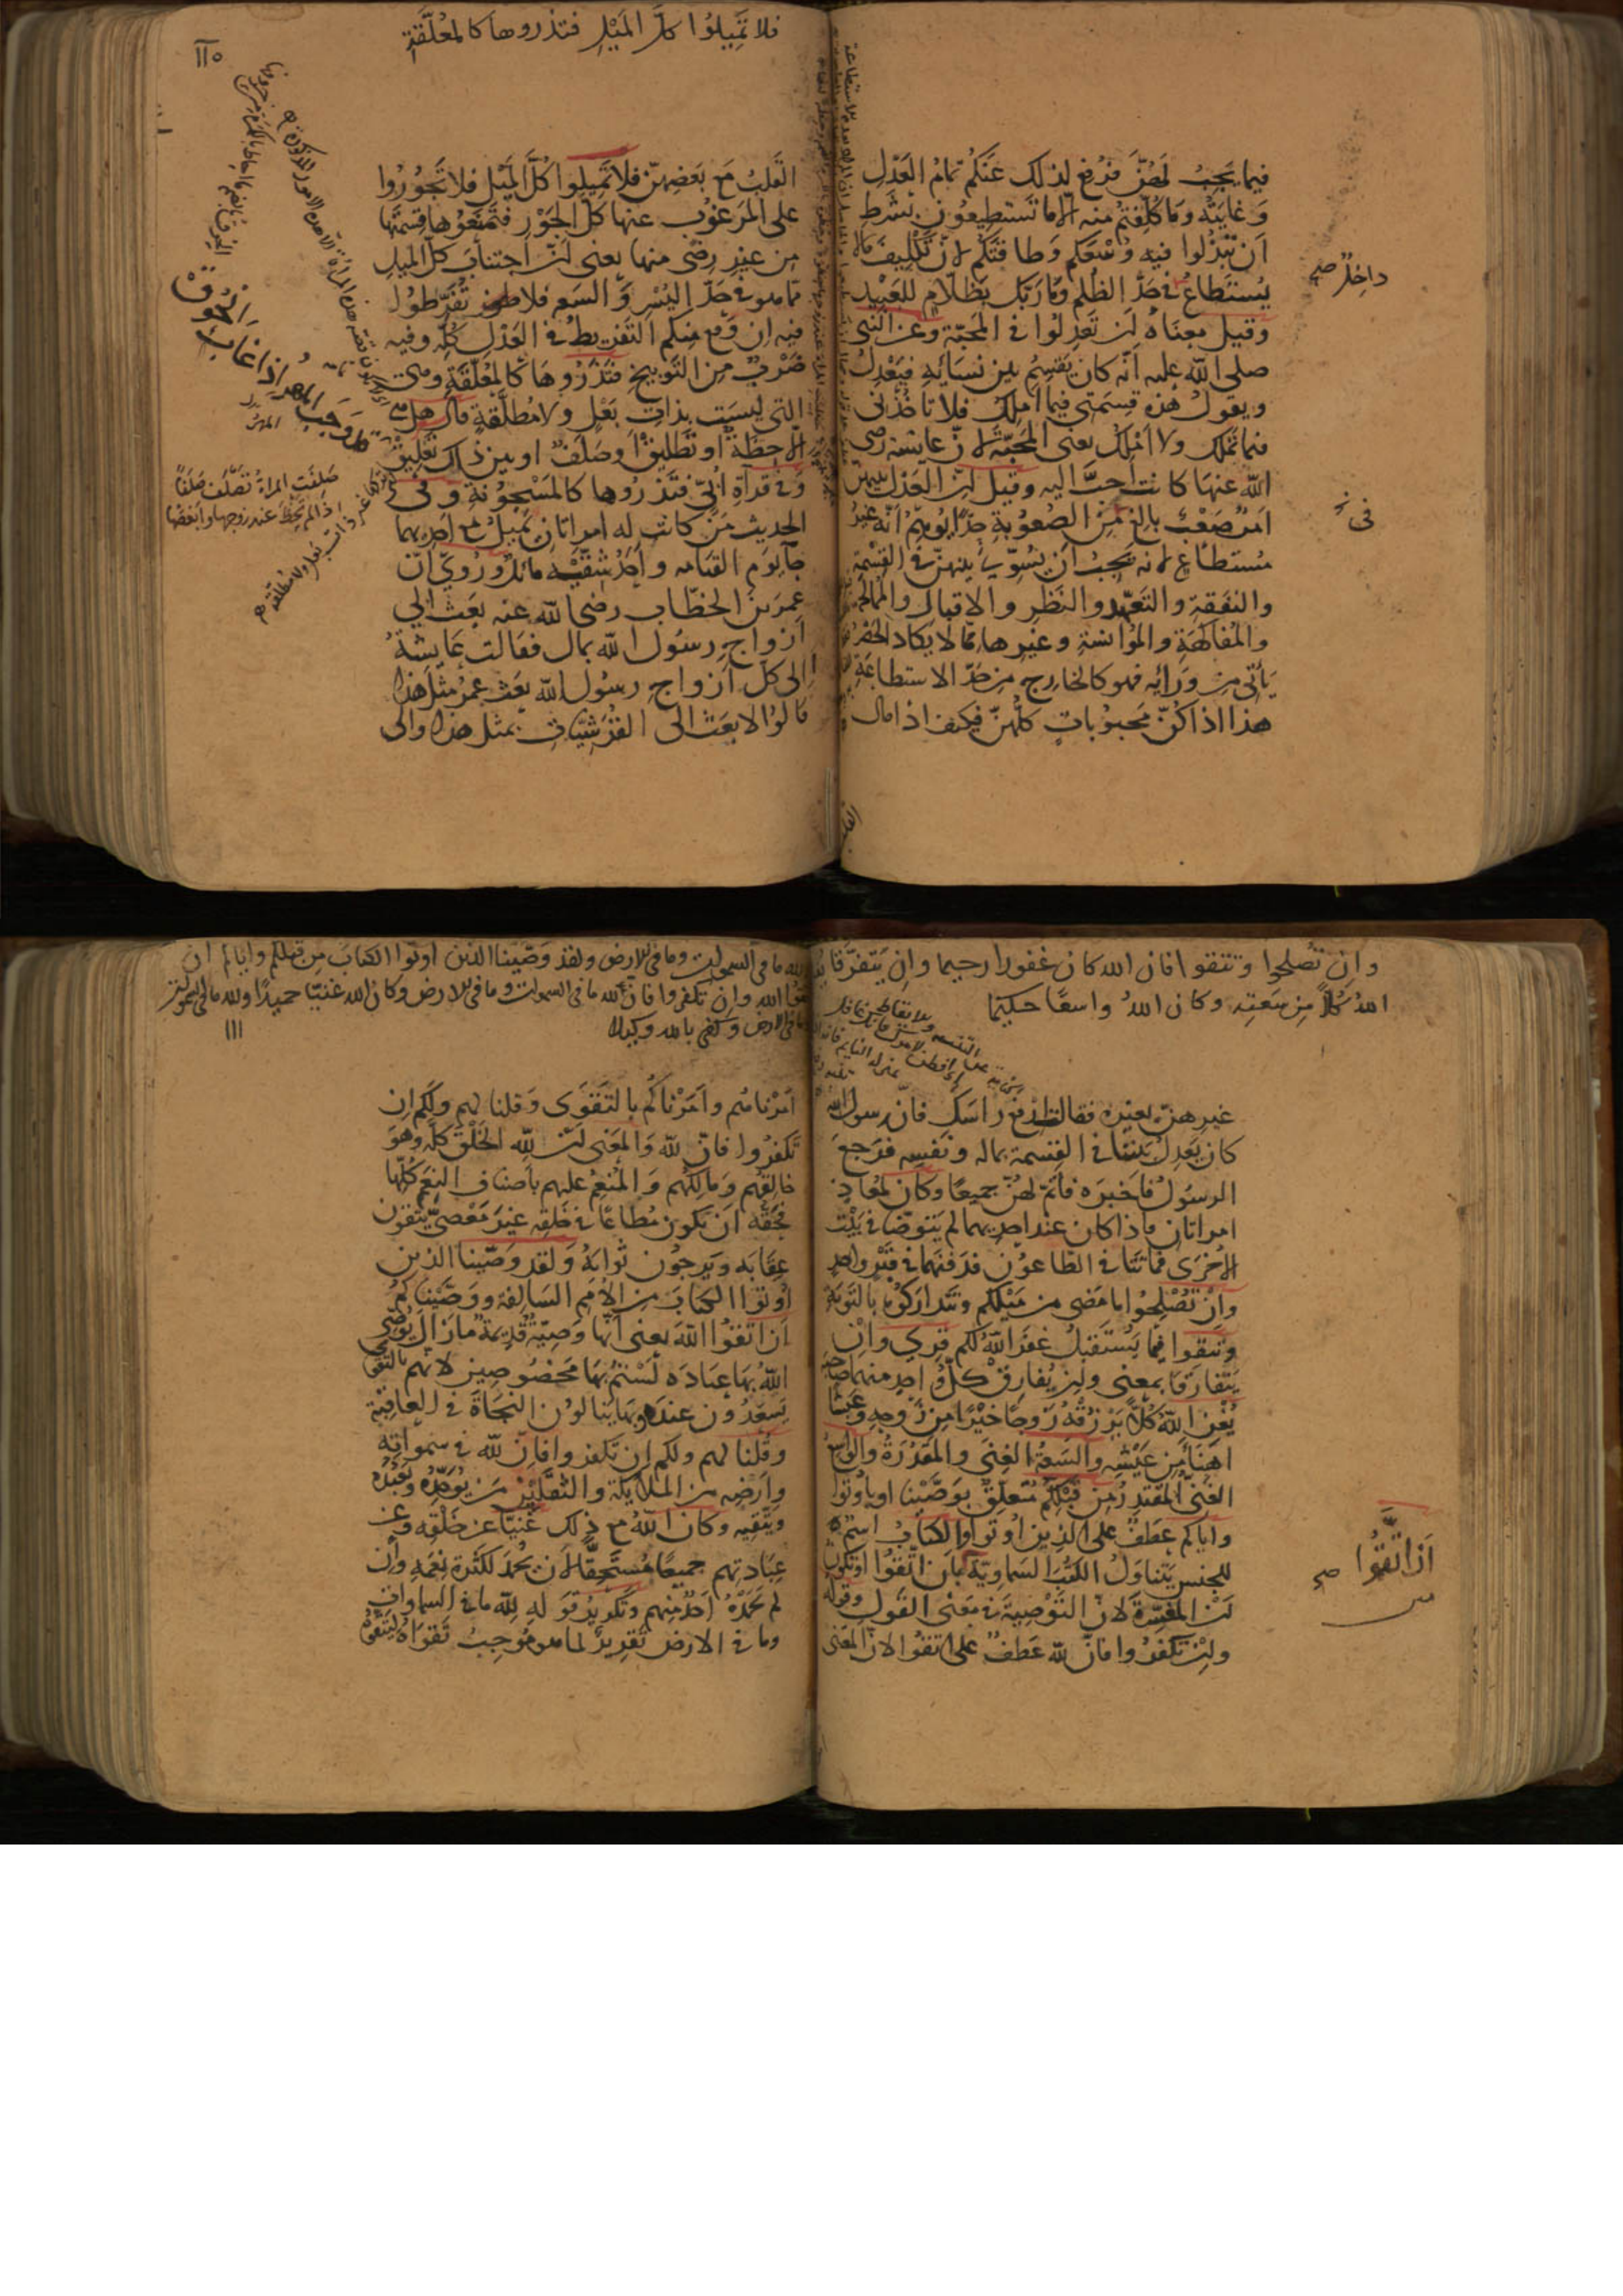 فيما يجب لهن فرفع لذلك عنكم تمام العدل
وغايته وما كلفتم منه الا ما تستطيعون بشرط
ان تبذلوا فيه وسعكم وطاقتكم لان تكليف مالا
يستطاع في حد الظلم وما ربك بظلام للعبيد
داخل صح
وقيل معناه ان تعدلوا في المحبة وعن النبي
صلى الله عليه انه كان يقسم بين نسائه فيعدل
ويقول هذه قسمتي فيما املك فلا تأخذني
فيما تملك ولا املك يعني المحبة لان عائشة رضي
الله عنها كانت احب اليه وقيل ان العدل بينهن
امر صعب بالغ من الصعوبة حدا يوهم انه غير
في
مستطاع لانه يجب ان يسوي بينهن في القسمة
والنفقة والتعهد والنظر والاقبال والممالحة
والمفاكهة والمؤانسة وغيرها مما لا يكاد الحصر
يأتي من ورائه فهو كالخارج من حد الاستطاعة
هذا اذا كن محبوبات كلهن فكيف اذا مال
فلا تميلوا كل الميل فتذروها كالمعلقة
القلب مع بعضهن فلا تميلوا كل الميل فلا تجوروا
على المرغوب عنها كل الجور فتمنعوها قسمتها
من غير رضى منها يعني ان اجتناب كل الميل
مما هو في حد اليسر والسعه فلا تفرطوا
فيه ان وقع منكم التفريط في العدل كله وفيه
ضرب من التوبيخ فتذروها كالمعلقة وهي
التي ليست بذات بعل ولا مطلقة قال هل هي
الا حظة او تطليق او صلف او بين ذاك تعليق
وفي قرآة ابي فتذروها كالمسجونة وفي
الحديث من كانت له امراتان يميل مع احديهما
جآ يوم القيامه واحد شقيه مائل وروي ان
عمر بن الخطاب رضي الله عنه بعث الي
ازواج رسول الله بمال فقالت عايشة
الى كل ازواج رسول الله بعث عمر مثل هذا
قالوا لا بعث الى القرشيات بمثل هذا والى
صلفت المراة تصلف صلفا
اذا لم تحظ عند زوجها وابغضها
وان تصلحوا وتتقوا فان الله كان غفورا رحيما وان يتفرقا يغن
الله كلا من سعته وكان الله واسعا حكيما
غيرهن بغيره فقالت ارفع راسك فان رسول الله
كان يعدل بيننا في القسمة بماله ونفسه فرجع
الرسول فاخبره فاتم لهن جميعا وكان لمعاذ
امراتان فاذا كان عند احديهما لم يتوضا في بيت
الاخرى فماتتا في الطاعون فدفنهما في قبر واحد
وان تصلحوا ما مضى من ميلكم وتتداركوه بالتوبة
وتتقوا فيما يستقبل غفر الله لكم قرئ وان
يتفارقا بمعنى وان يفارق كل واحد منهما صاحبه
يغن الله كلا يرزقه زوجا خيرا من زوجه وعيشا
اهنأ من عيشه والسعة الغنى والمقدرة والواسع
الغني المقتدر من قبلكم متعلق بوصينا او باوتوا
واياكم عطف على الذين اوتوا والكتاب اسم
للجنس يتناول الكتب السماوية بان اتقوا او تكون
ان اتقوا صح
ان المفسرة لان التوصية في معنى القول وقوله
وان تكفروا فان لله عطف على اتقوا لان المعنى
لله ما في السموات وما في الارض ولقد وصينا الذين اوتوا الكتاب من قبلكم واياكم ان
اتقوا الله وان تكفروا فان لله ما في السموات وما في الارض وكان الله غنيا حميدا ولله ما في السموات
وما في الارض وكفى بالله وكيلا
١١١
امرناهم وامرناكم بالتقوى وقلنا لهم ولكم ان
تكفروا فان لله والمعنى ان لله الخلق كله وهو
خالقهم ومالكهم والمنعم عليهم باصناف النعم كلها
فحقه ان يكون مطاعا في خلقه غير معصي يتقون
عقابه ويرجون ثوابه ولقد وصينا الذين
اوتوا الكتاب من الامم السالفة ووصيناكم
ان اتقوا الله يعني انها وصية قديمة ما زال يوصي
الله بها عباده لستم بها مخصوصين لانهم بالتقوى
يسعدون عنده وبها ينالون النجاة في العاقبة
وقلنا لهم ولكم ان تكفروا فان لله في سمواته
وارضه من الملايكة والثقلين من يوحده ويعبده
ويتقيه وكان الله مع ذلك غنيا عن خلقه وعن
عبادتهم جميعا مستحقا لان يحمد لكثرة نعمه وان
لم يحمده احد منهم وتكرير قوله لله ما في السماوات
وما في الارض تقرير لما هو موجب تقواه ليتقوه